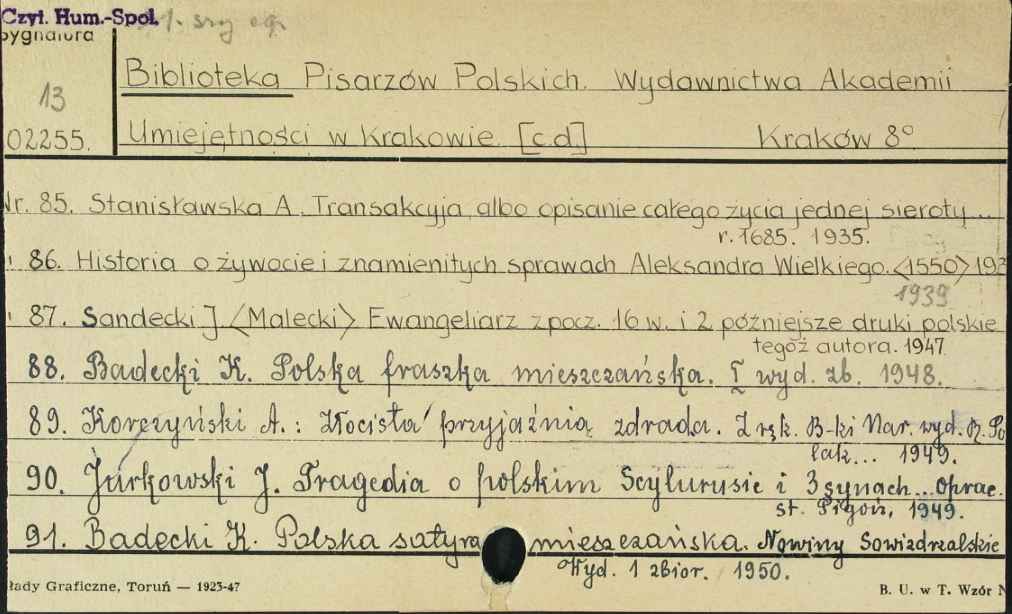 Czyt. Hum.-Społ.
Sygnatura
13
02255.
Biblioteka Pisarzów Polskich. Wydawnictwa Akademii
Umiejętności w Krakowie. [c.d.] Kraków 8°
Nr. 85. Stanisławska A. Transakcyja albo opisanie całego życia jednej sieroty...
r. 1685. 1935.
86. Historia o żywocie i znamienitych sprawach Aleksandra Wielkiego. <1550> 193
1939
87. Sandecki J <Malecki> Ewangeliarz z pocz. 16 w. i 2 późniejsze druki polskie
tegoż autora. 1947
88. Badecki K. Polska fraszka mieszczańska. I wyd. zb. 1948.
89. Korczyński A.: Złocista przyjaźnią zdrada. Z ręk. B-ki Nar. wyd. R. Po
lak... 1949.
90. Jurkowski J. Tragedia o polskim Scylurusie i 3 synach... oprac.
st. Pigoń, 1949.
91. Badecki K. Polska satyra mieszczańska. Nowiny Sowizdrzalskie
Wyd. 1 zbior. 1950.
łady Graficzne, Toruń — 1923-47
B. U. w T. Wzór N